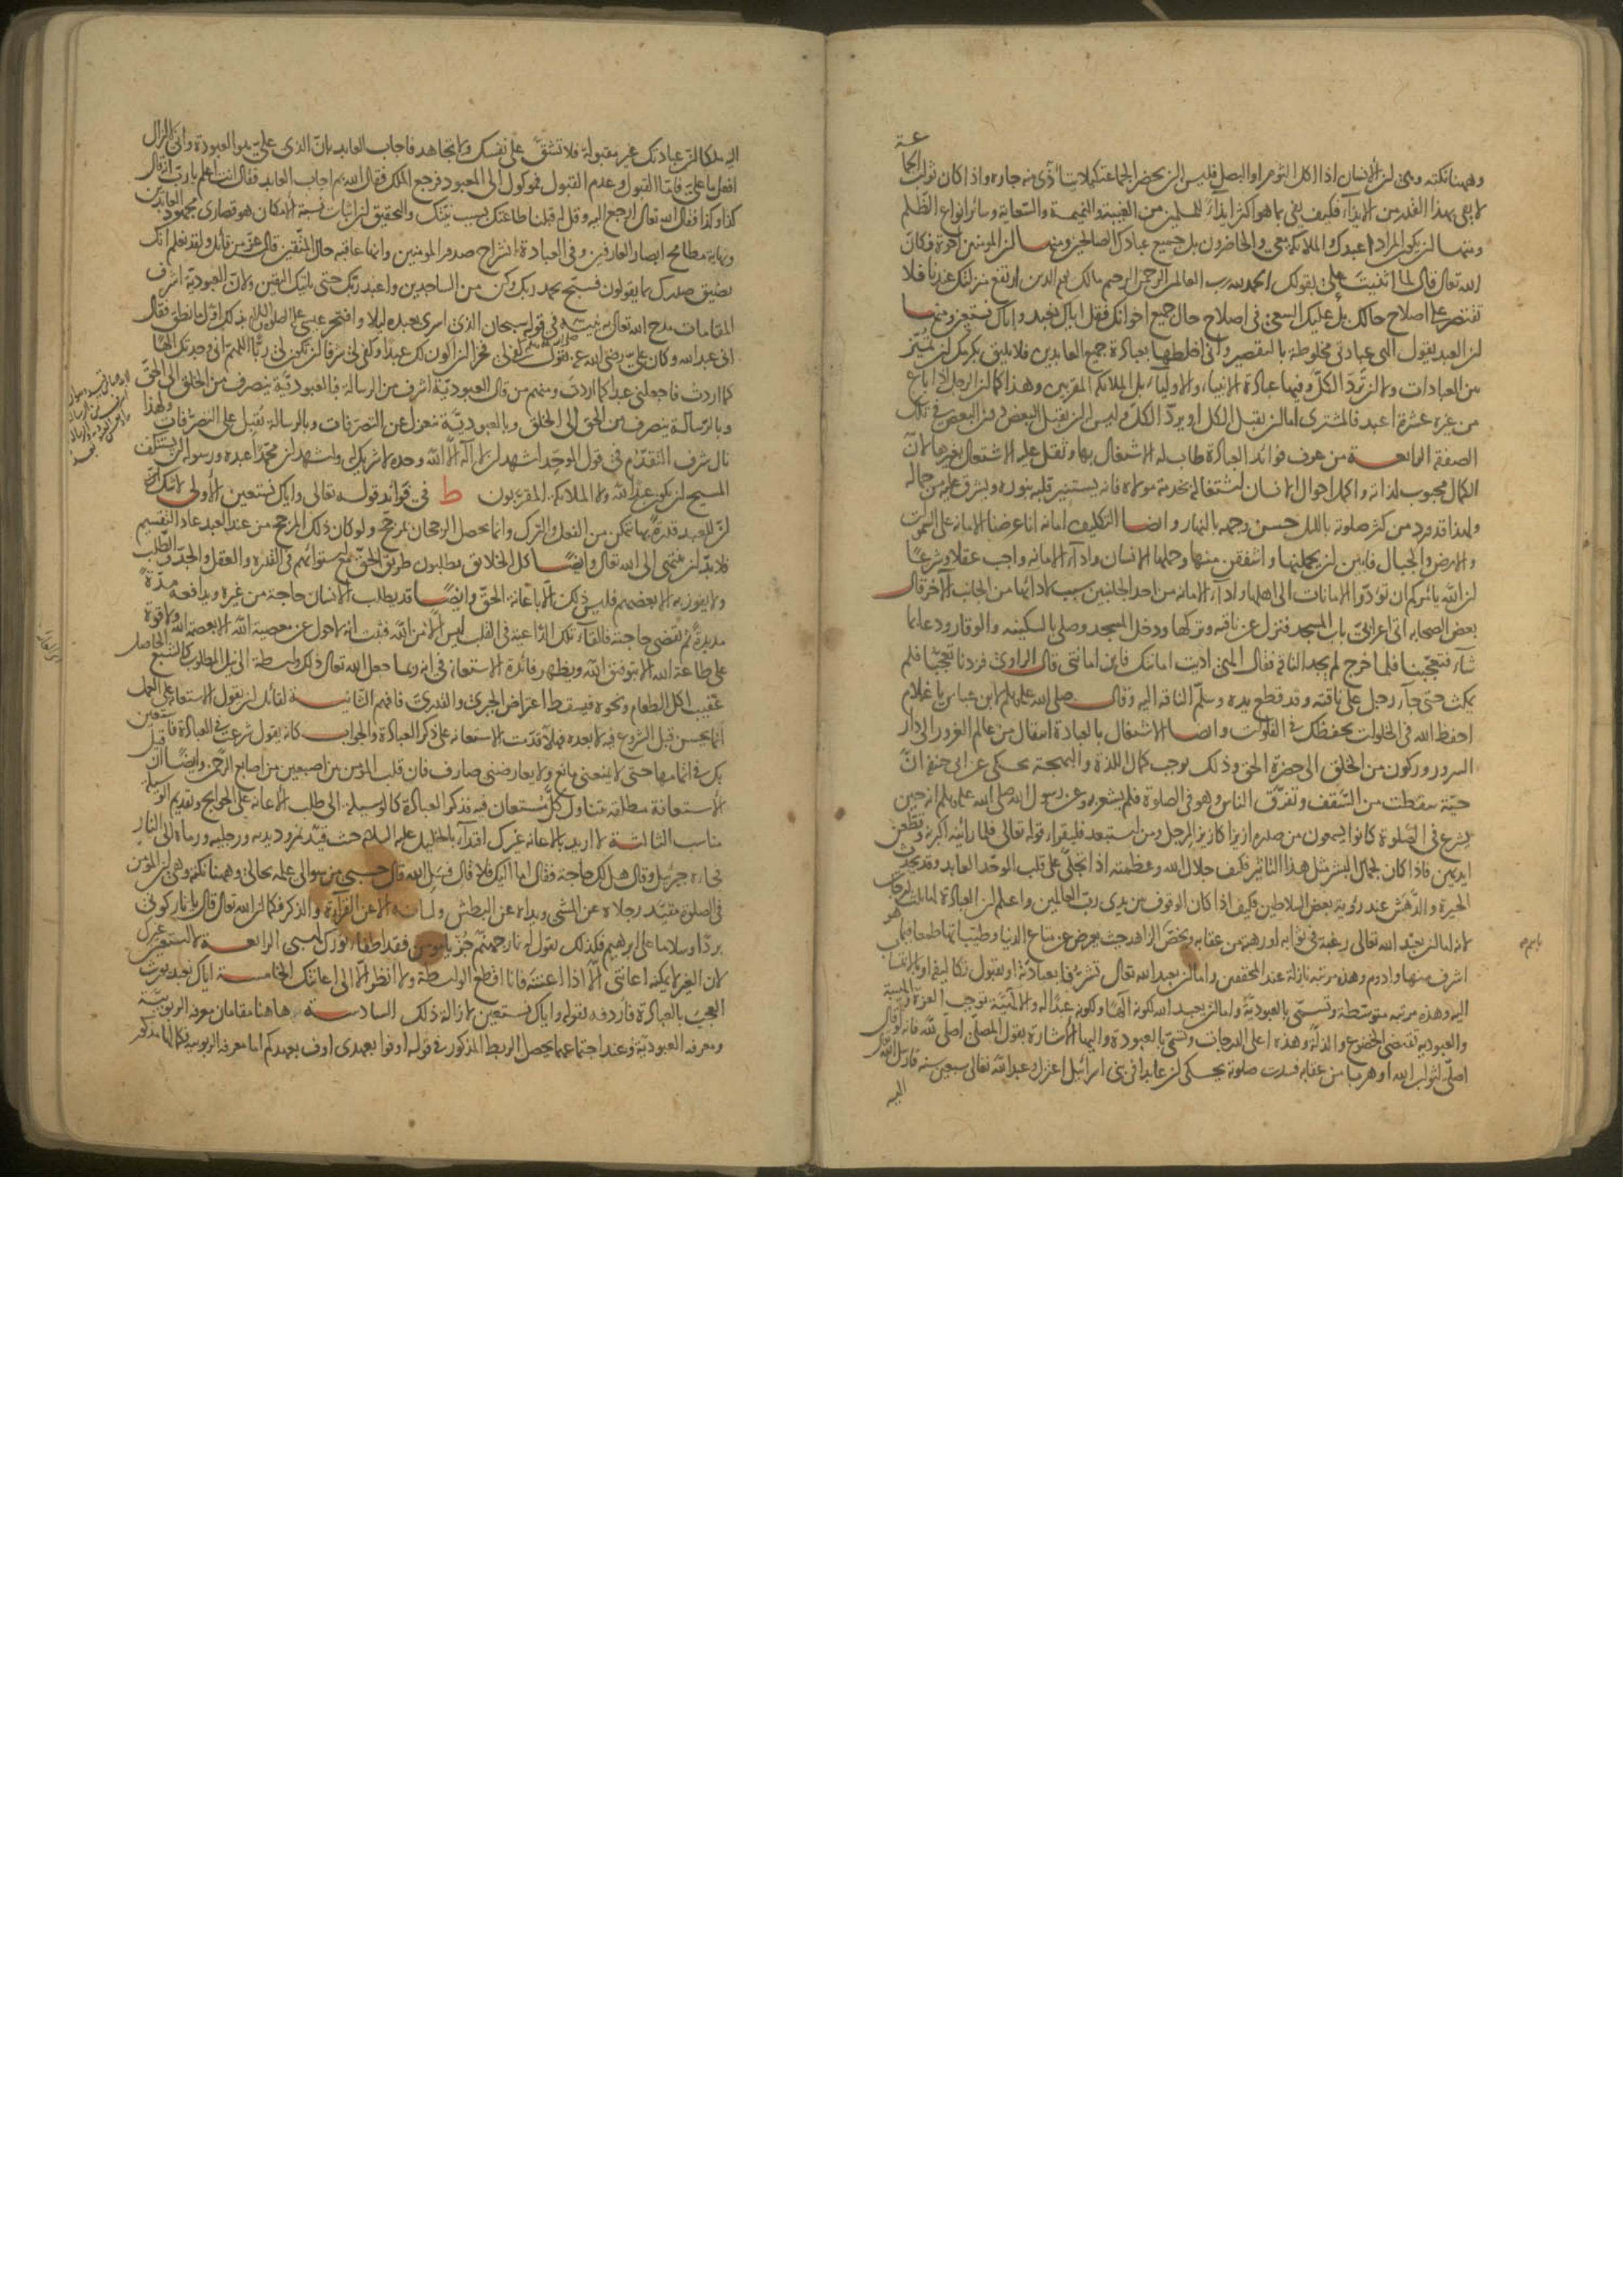 وههنا نكتة وهي ان الانسان اذا اكل الثوم او البصل فليس له ان يحضر الجماعة كيلا يتأذى منه جاره واذا كان ثواب الجماعة
لا يفي بهذا القدر من الايذاء فكيف يفي بما هو اكثر ايذاء للمسلمين من الغيبة والنميمة والسعاية وسائر انواع الظلم
ومنها ان يكون المراد اعبدك والملائكة معي والحاضرون بل جميع عبادك الصالحين ومنها ان المؤمنين اخوة فكان
الله تعالى قال لما اثنيت علي بقولك الحمد لله رب العالمين الرحمن الرحيم مالك يوم الدين ارتفع منزلتك عندنا فلا
تقتصر على اصلاح حالك بل عليك السعي في اصلاح حال جميع اخوانك فقل اياك نعبد واياك نستعين ومنها
ان العبد يقول الهي عبادتي مخلوطة بالتقصير واني اخلطها بعبادة جميع العابدين فلا يليق بكرمك ان تميز
بين العبادات ولا ان ترد الكل وفيها عبادة الانبياء والاولياء بل الملائكة المقربين وهذا كما ان الرجل اذا باع
من غيره عشرة اعبد فالمشتري اما ان يقبل الكل او يرد الكل وليس له ان يقبل البعض دون البعض في تلك
الصفقة الرابعة من عرف فوائد العبادة طاب له الاشتغال بها وثقل عليه الاشتغال بغيرها لان
الكمال محبوب لذاته واكمل احوال الانسان اشتغاله بخدمة مولاه فانه يستنير قلبه بنوره ويشرق عليه من جماله
ولهذا قد ورد من كثر صلوته بالليل حسن وجهه بالنهار وايضا التكليف امانة انا عرضنا الامانة على السموات
والارض والجبال فابين ان يحملنها واشفقن منها وحملها الانسان واداء الامانة واجب عقلا وشرعا
ان الله يأمركم ان تؤدوا الامانات الى اهلها واداء الامانة من احد الجانبين سبب لادائها من الجانب الآخر قال
بعض الصحابة اتى اعرابي باب المسجد فنزل عن ناقته وتركها ودخل المسجد وصلى بالسكينة والوقار ودعا بما
شاء فتعجبنا فلما خرج لم يجد الناقة فقال الهي اديت امانتك فاين امانتي قال الراوي فزدنا تعجبا فلم
يمكث حتى جاء رجل على ناقته وقد قطع يده وسلم الناقة اليه وقال صلى الله عليه وسلم لابن عباس يا غلام
احفظ الله في الخلوات يحفظك في الفلوات وايضا الاشتغال بالعبادة انتقال من عالم الغرور الى دار
السرور وركون من الخلق الى حضرة الحق وذلك يوجب كمال اللذة والبهجة يحكى عن ابي حنيفة ان
حية سقطت من السقف وتفرق الناس وهو في الصلوة فلم يشعر به وعن رسول الله صلى الله عليه وسلم انه حين
يشرع في الصلوة كانوا يسمعون من صدره ازيزا كازيز المرجل ومن استبعد فليقرأ قوله تعالى فلما رأينه اكبرنه وقطعن
ايديهن فاذا كان لجمال البشر مثل هذا التاثير فكيف جلال الله وعظمته اذا تجلى على قلب الموحد العابد وقد يحدث
الحيرة والدهش عند رؤية بعض السلاطين فكيف اذا كان الوقوف بين يدي رب العالمين واعلم ان العبادة لها ثلث درجات
لانه اما ان يعبد الله تعالى رغبة في ثوابه او رهبة من عقابه ويختص الزاهد حيث يعرض عن متاع الدنيا وطيباتها طمعا فيما هو
اشرف منها وادوم وهذه مرتبة نازلة عند المحققين واما ان يعبد الله تعالى تشرفا بعبادته او بقبول تكاليفه او بالانتساب
اليه وهذه مرتبة متوسطة وتسمى بالعبودية واما ان يعبد الله لكونه الها ولكونه عبدا له والالهية توجب العزة والهيبة
والعبودية تقتضي الخضوع والذلة وهذه اعلى الدرجات وتسمى بالعبودة واليها الاشارة بقول المصلي اصلي لله فانه لو قال
اصلي لثواب الله او هربا من عقابه فسدت صلوته يحكى ان عابدا في بني اسرائيل اعتزل وعبد الله تعالى سبعين سنة فارسل الله تعالى
اليه
اليه ملكا ان عبادتك غير مقبولة فلا تشق على نفسك ولا تجاهد فاجاب العابد بان الذي علي هو العبودة واني لا ازال
افعل ما علي فاما القبول وعدم القبول فموكول الى المعبود فرجع الملك فقال الله بم اجاب العابد فقال انت اعلم يا رب انه قال
كذا وكذا فقال الله تعالى ارجع اليه وقل له قبلنا طاعتك بسبب نيتك والتحقيق ان اثبات نسبة الامكان هو قصارى مجهود العابدين
ونهاية مطامح ابصار العارفين وفي العبادة انشراح صدور المؤمنين وانها عاقبة حال المتقين قال عز من قائل ولقد نعلم انك
يضيق صدرك بما يقولون فسبح بحمد ربك وكن من الساجدين واعبد ربك حتى ياتيك اليقين ولان العبودية اشرف
المقامات مدح الله تعالى نبيه في قوله سبحان الذي اسرى بعبده ليلا وافتخر عيسى عليه السلام بذلك اول ما نطق فقال
اني عبد الله وكان علي رضي الله عنه يقول كفى لي فخرا ان اكون لك عبدا وكفى لي شرفا ان تكون لي ربا اللهم اني وجدتك الها
كما اردت فاجعلني عبدا كما اردت ومنهم من قال العبودية اشرف من الرسالة فبالعبودية ينصرف من الخلق الى الحق
وبالرسالة ينصرف من الحق الى الخلق وبالعبودية ينعزل عن التصرفات وبالرسالة يقبل على التصرفات ولهذا
نال شرف التقدم في قول الموحد اشهد ان لا اله الا الله وحده لا شريك له واشهد ان محمدا عبده ورسوله لن يستنكف
المسيح ان يكون عبدا لله ولا الملائكة المقربون ط في فوائد قوله تعالى واياك نستعين الاولى لا شك ان
ان للعبد قدرة بها يتمكن من الفعل والترك وانما يحصل الرجحان بمرجح ولو كان ذلك المرجح من عند العبد عاد التقسيم
فلا بد ان ينتهي الى الله تعالى وايضا كل الخلائق يطلبون طريق الحق مع استوائهم في القدرة والعقل والجد والطلب
ولا يفوز به الا بعضهم فليس ذلك الا باعانة الحق وايضا قد يطلب الانسان حاجة من غيره ويدافعه مدة
مديدة ثم يقضي حاجته فالقاء تلك الداعية في القلب ليس الا من الله فثبت انه لا حول عن معصية الله الا بعصمة الله ولا قوة
على طاعة الله الا بتوفيق الله ويظهر فائدة الاستعانة في انه ربما جعل الله تعالى ذلك واسطة الى نيل المطلوب كالشبع الحاصل
عقيب اكل الطعام ونحوه فيسقط اعتراض الجبري والقدري فافهم الثانية لقائل ان يقول الاستعانة على العمل
انما يحسن قبل الشروع فيه لا بعده فهلا قدمت الاستعانة على ذكر العبادة والجواب كانه يقول شرعت في العبادة فاستعين
بك في اتمامها حتى لا يمنعني مانع ولا يعارضني صارف فان قلب المؤمن بين اصبعين من اصابع الرحمن وايضا ان قيل
الاستعانة مطلقة تتناول كل مستعان فيه فذكر العبادة كالوسيلة الى طلب الاعانة على الحوائج وتقديم الوسيلة
مناسب الثالثة لا اريد بالاعانة غيرك اقتداء بالخليل عليه السلام حيث قيد نمرود يديه ورجليه ورماه الى النار
فجاءه جبرئيل وقال هل لك حاجة فقال اما اليك فلا قال فسل الله قال حسبي من سؤالي علمه بحالي وههنا نكتة وهي ان المؤمن
في الصلوة مقيد رجلاه عن المشي ويداه عن البطش ولسانه الا عن القراءة والذكر فكما ان الله تعالى قال يا نار كوني
بردا وسلاما على ابرهيم فكذلك يقول له نار جهنم جز يا مؤمن فقد اطفأ نورك لهبي الرابعة لا استعين غيرك
لان الغير لا يمكنه اعانتي الا اذا اعنته فانا اقطع الواسطة ولا انظر الا الى اعانتك الخامسة اياك نعبد يورث
العجب بالعبادة فاردفه بقوله واياك نستعين لازالة ذلك السادسة هاهنا مقامان معرفة الربوبية
ومعرفة العبودية وعند اجتماعهما يحصل الربط المذكور في قوله اوفوا بعهدي اوف بعهدكم اما معرفة الربوبية فكمالها مذكور